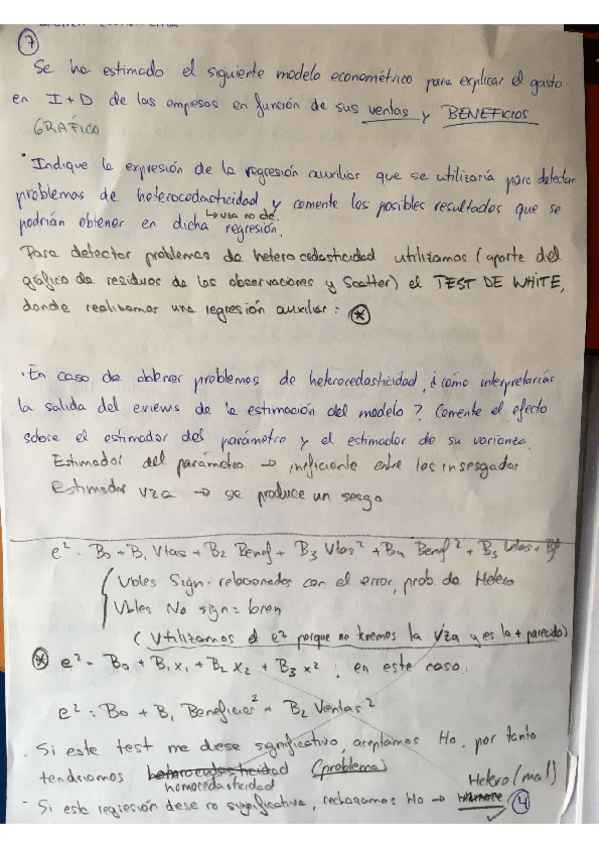 7
Se ha estimado el siguiente modelo econométrico para explicar el gasto
en I+D de las empresas en función de sus ventas y BENEFICIOS
GRÁFICO
· Indique la expresión de la regresión auxiliar que se utilizaría para detectar
problemas de heterocedasticidad y comente los posibles resultados que se
podrían obtener en dicha regresión. ↳ vza no cte.
Para detectar problemas de heterocedasticidad utilizamos (aparte del
gráfico de residuos de las observaciones y Scatter) el TEST DE WHITE,
donde realizamos una regresión auxiliar: *
· En caso de obtener problemas de heterocedasticidad, ¿cómo interpretarías
la salida del eviews de la estimación del modelo? Comente el efecto
sobre el estimador del parámetro y el estimador de su varianza.
Estimador del parámetro → ineficiente entre los insesgados
Estimador vza → se produce un sesgo
e² = B0 + B1 Vtas + B2 Benef + B3 Vtas² + B4 Benef² + B5 Vtas *
Vbles Sign: relacionadas con el error, prob. de Hetero
Vbles No sign = bien
(Utilizamos el e² porque no tenemos la vza y es lo + parecido)
* e² = B0 + B1 x1 + B2 x2 + B3 x² : en este caso:
e² = B0 + B1 Beneficios² + B2 Ventas²
- Si este test me diese significativo, aceptamos Ho, por tanto
tendríamos heterocedasticidad (problema)
homocedasticidad
Hetero (mal)
- Si esta regresión dese no significativa, rechazamos Ho →
4